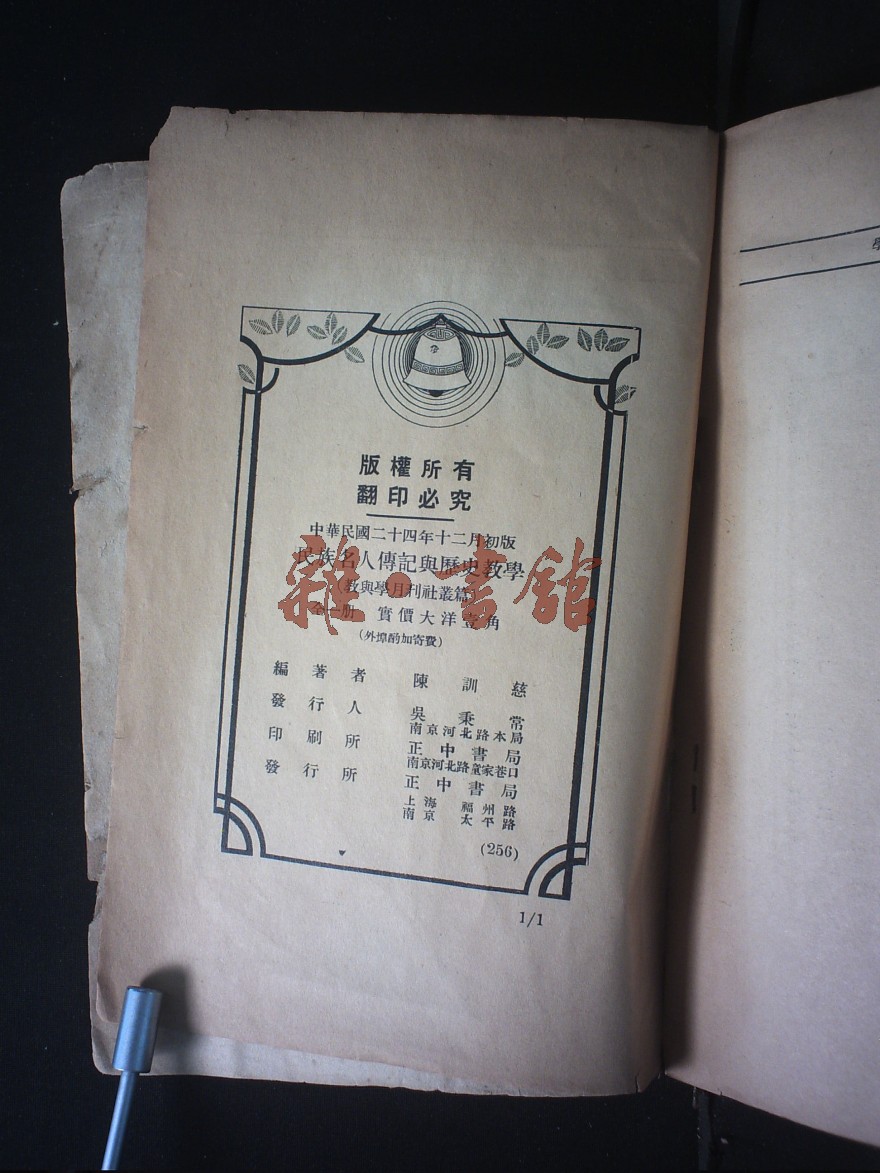 版權所有
翻印必究
中華民國二十四年十二月初版
民族名人傳記與歷史教學
(教與學月刊社叢篇)
全一册 實價大洋壹角
(外埠酌加寄費)
編著者 陳訓慈
發行人 吳秉常
南京河北路本局
印刷所 正中書局
南京河北路童家巷口
發行所 正中書局
上海福州路
南京太平路
(256)
1/1
雜·書館
學